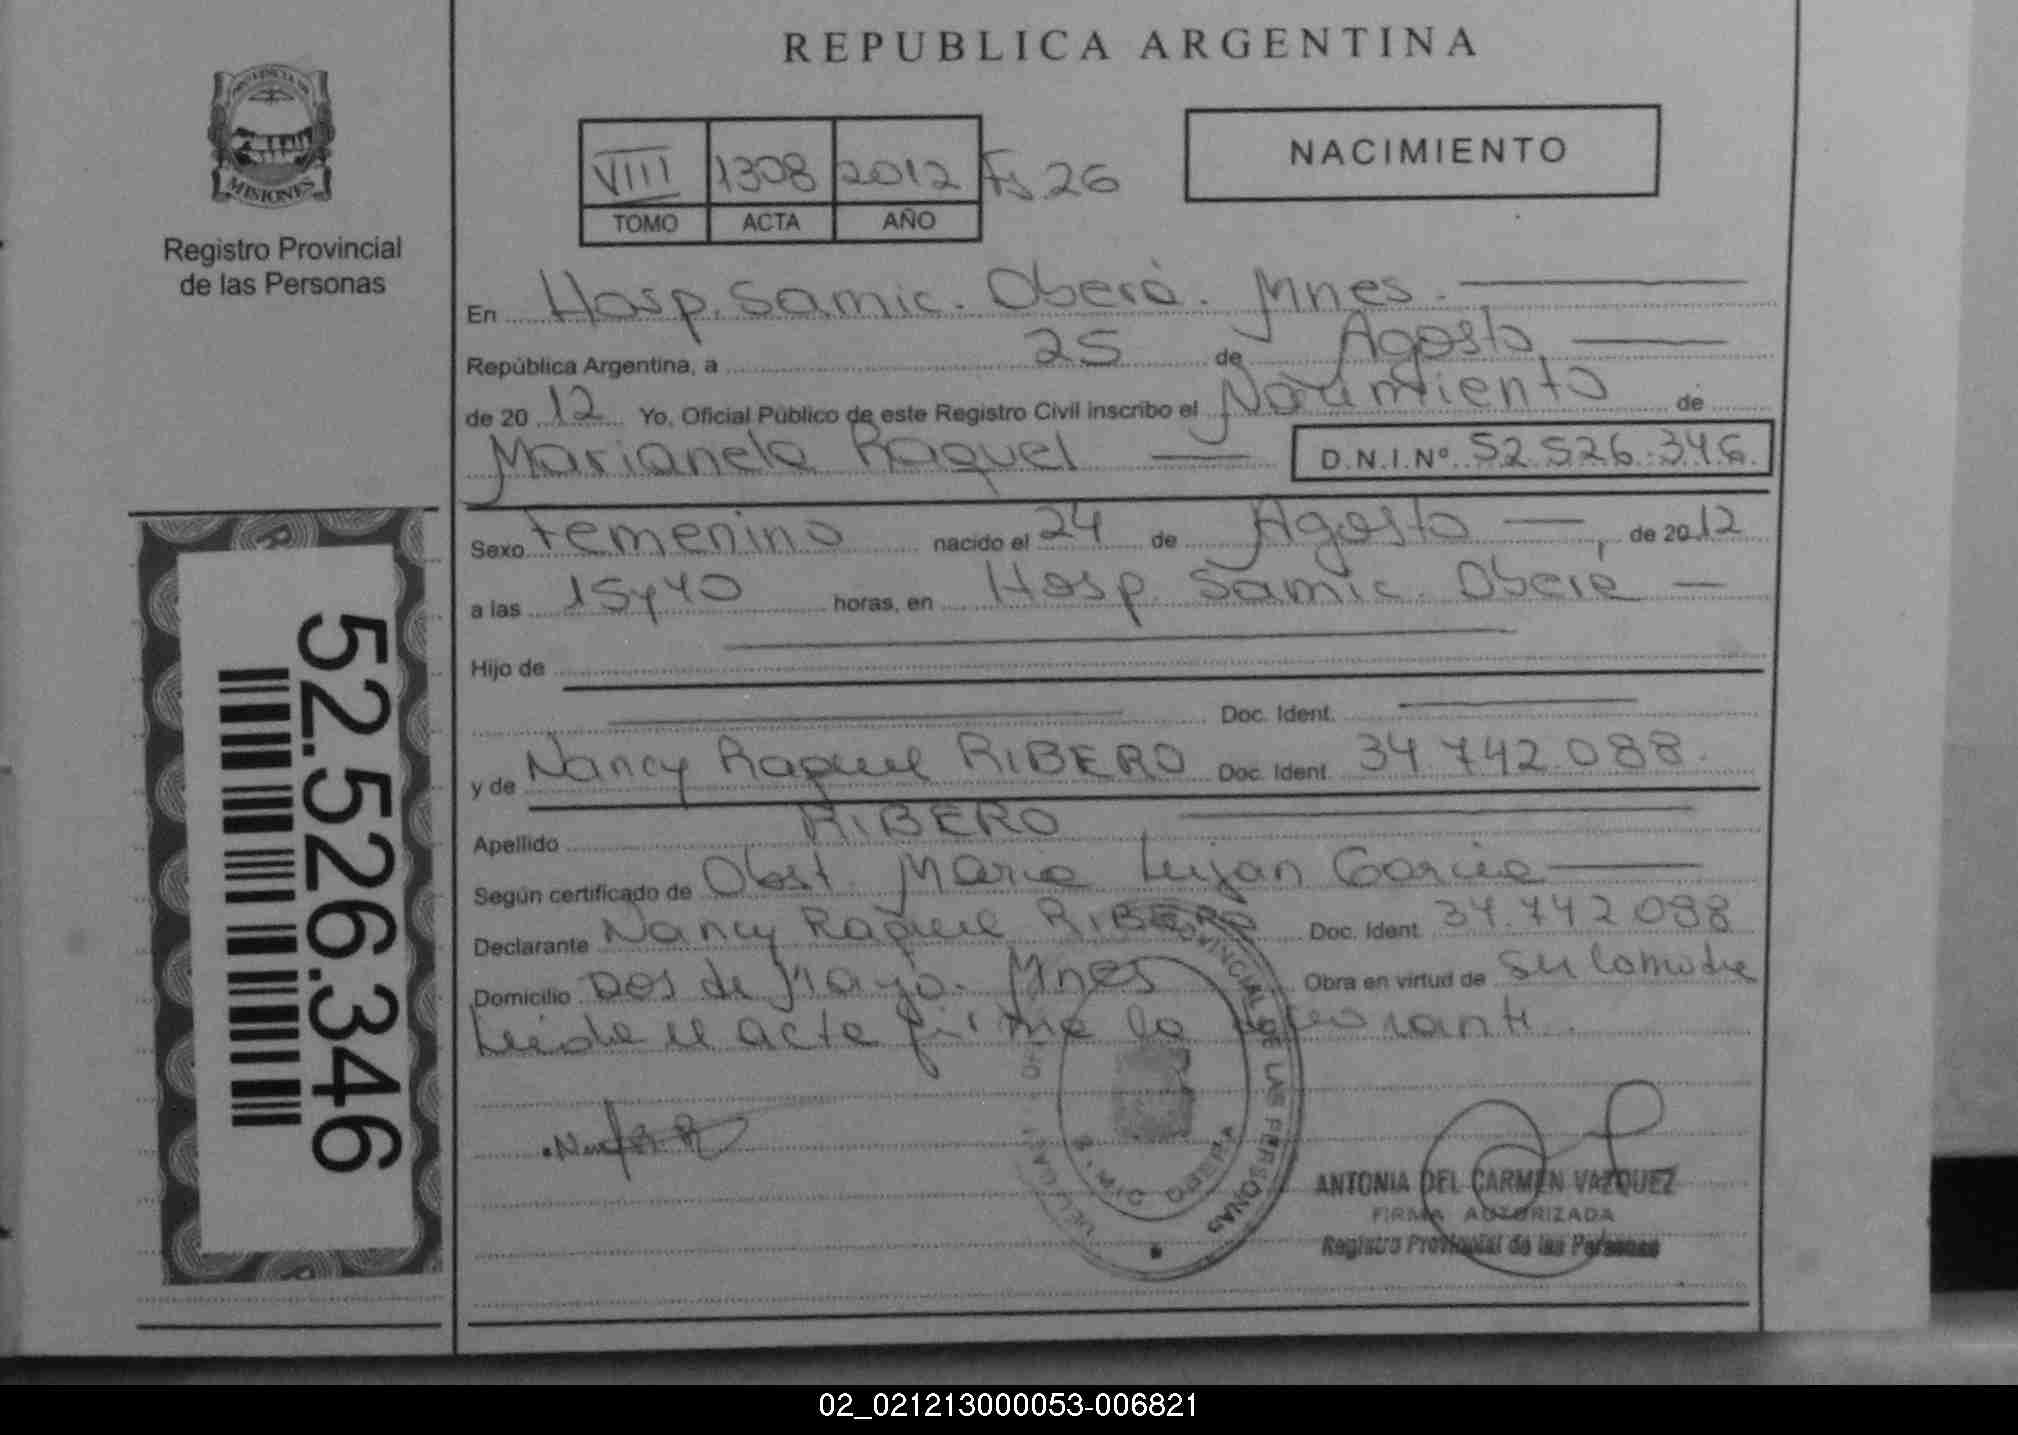 REPUBLICA ARGENTINA
PROVINCIA DE
MISIONES
Registro Provincial
de las Personas
VIII 1308 2012 Fs 26
TOMO ACTA AÑO
NACIMIENTO
En Hosp. Samic. Oberá. Mnes.
República Argentina, a 25 de Agosto
de 2012 Yo, Oficial Público de este Registro Civil inscribo el Nacimiento de
Marianela Raquel D.N.I.Nº 52.526.346
Sexo Femenino nacido el 24 de Agosto, de 2012
a las 15y40 horas, en Hosp. Samic. Oberá
Hijo de
Doc. Ident.
y de Nancy Raquel RIBERO Doc. Ident. 34.742.088.
Apellido RIBERO
Según certificado de Obst. Maria Lujan Garcia
Declarante Nancy Raquel RIBERO Doc. Ident. 34.742.088
Domicilio Dos de Mayo. Mnes Obra en virtud de
Leida el acta firma la declarante.
52.526.346
PROVINCIAL DE LAS PERSONAS
OBERA
ANTONIA DEL CARMEN VAZQUEZ
FIRMA AUTORIZADA
Registro Provincial de las Personas
02_021213000053-006821